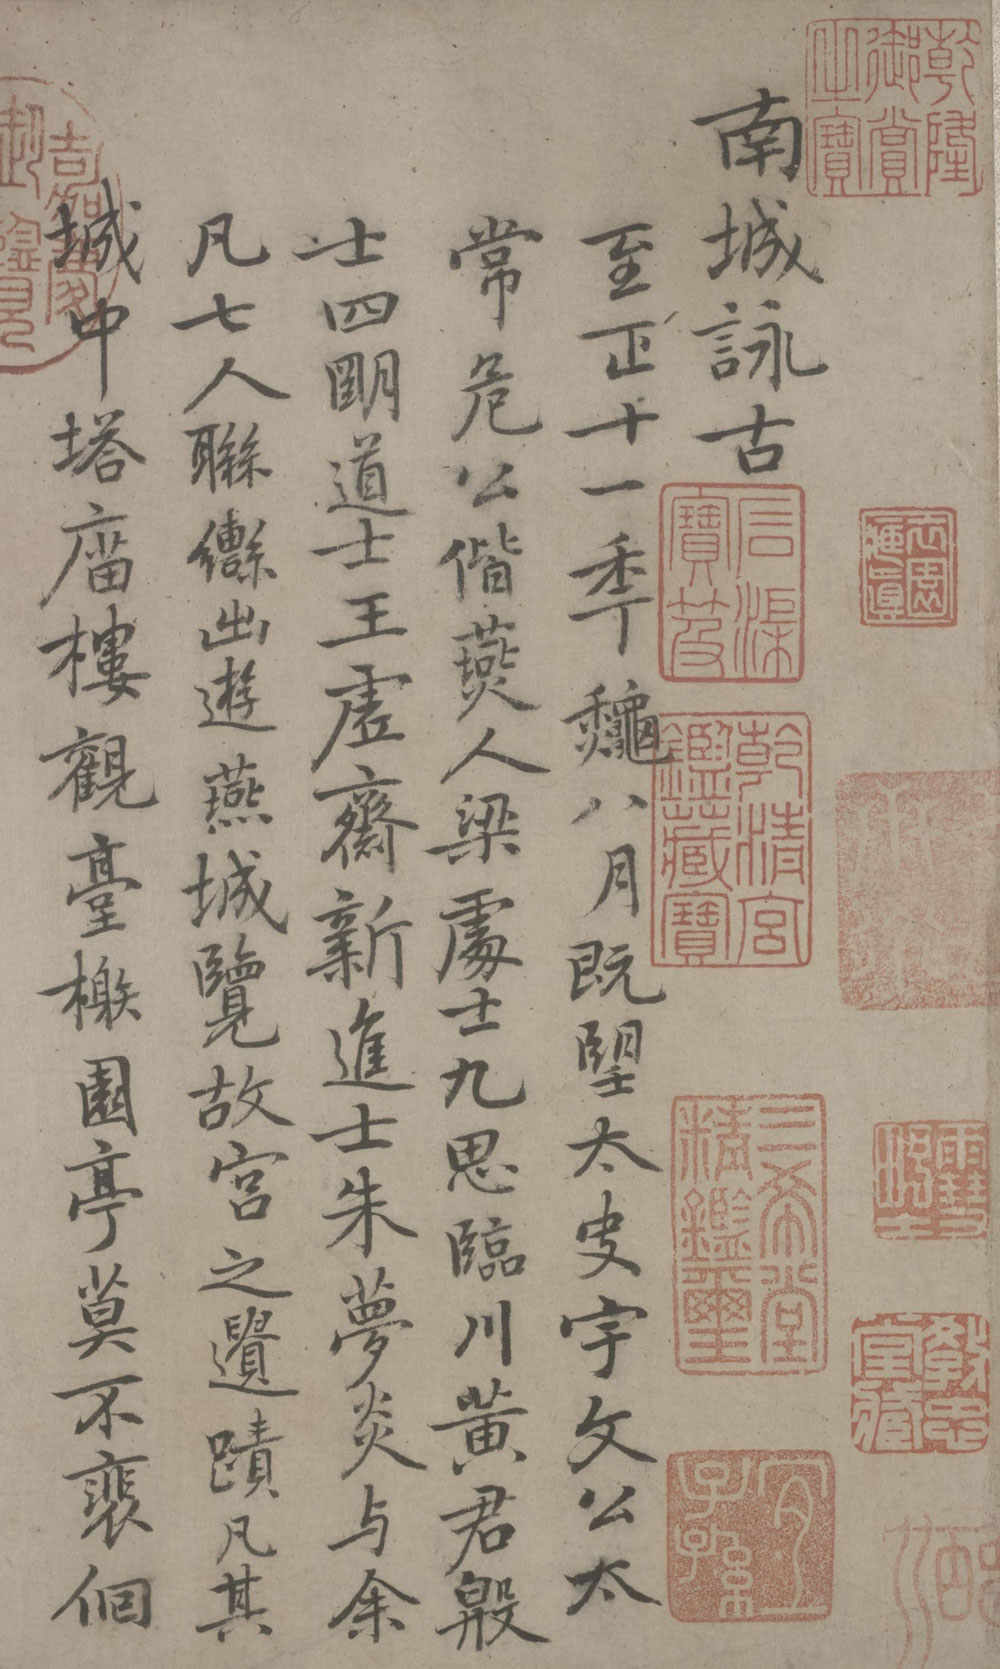 南城詠古
至正十一季龝八月既朢太史宇文公太
常危公偕燕人梁處士九思臨川黃君殷
士四朙道士王虛齋新進士朱夢炎与余
凡七人聯轡出遊燕城覽故宮之遺蹟凡其
城中塔廟樓觀臺榭園亭莫不裵佪
乾隆御賞之寶
石渠寶笈
乾清宮鑑藏寶
三希堂精鑑璽
宜子孫